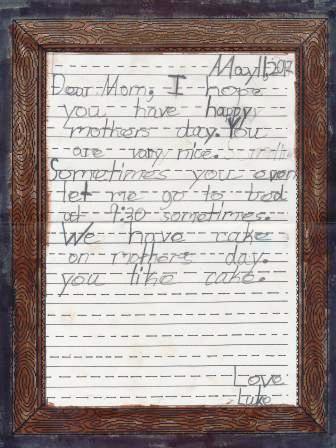 May 11, 2017
Dear Mom, I hope
you have happy
mothers day. You
are vary nice.
Sometimes you even
let me go to bed
at 9:30 sometimes.
We have cake
on mothers day.
you like cake.
Love
Luke